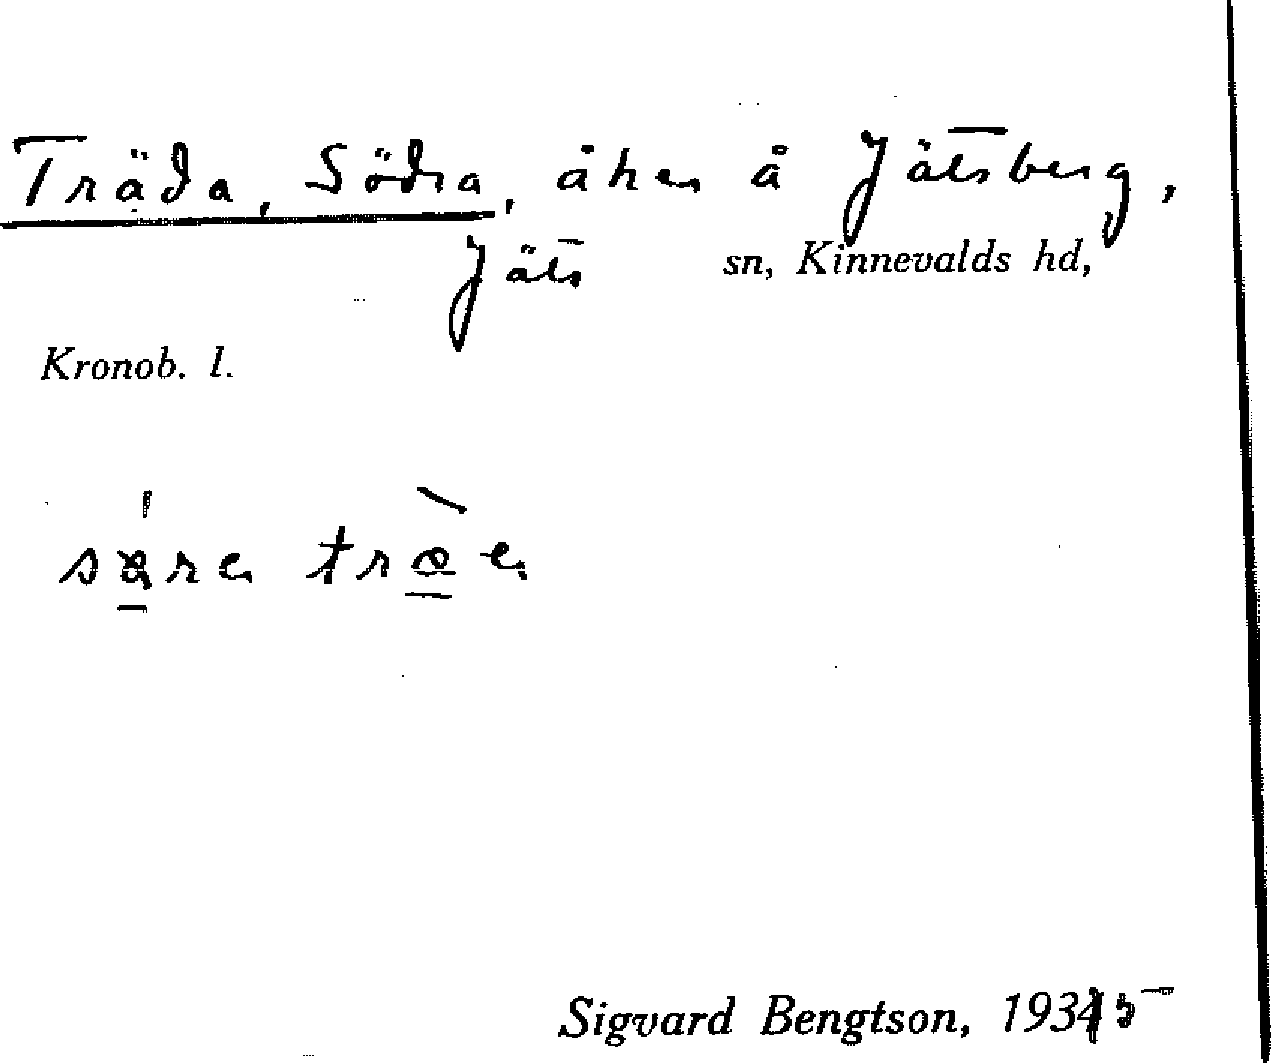 Träda, Södra, åker å Jätsberg,
Jäts sn, Kinnevalds hd,
Kronob. l.
Sigvard Bengtson, 1935